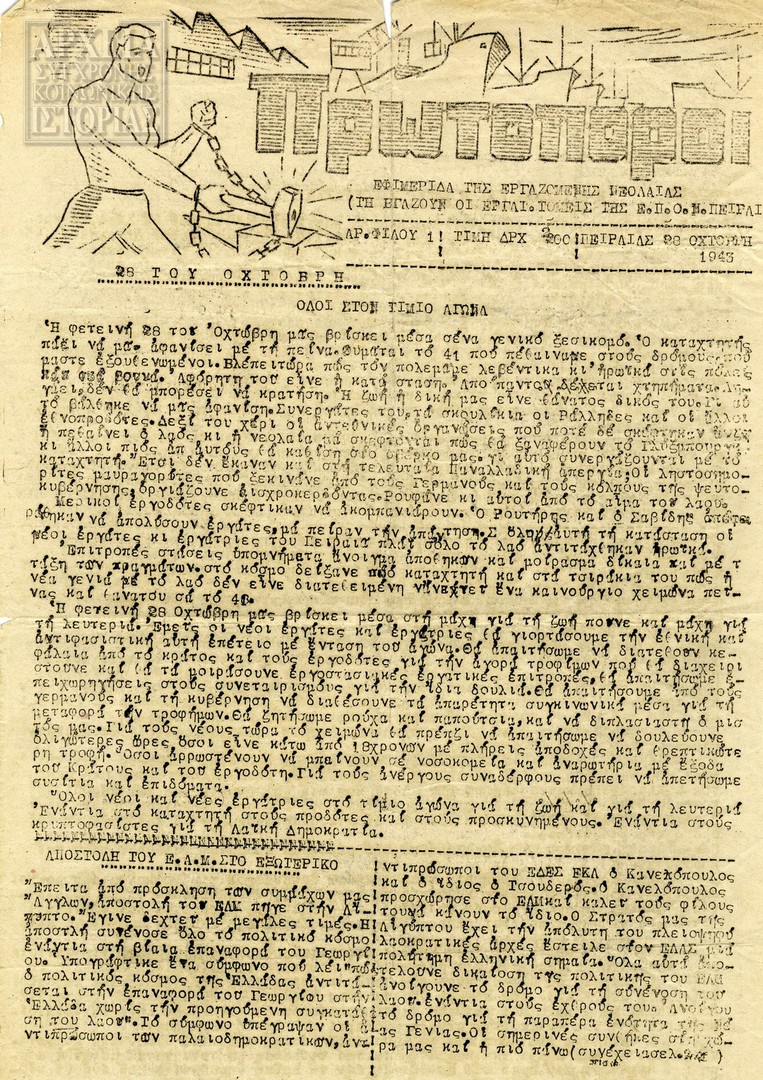 ΑΡΧΕΙΑ
ΣΥΓΧΡΟΝΗΣ
ΚΟΙΝΩΝΙΚΗΣ
ΙΣΤΟΡΙΑΣ
Πρωτοπόροι
ΕΦΙΜΕΡΙΔΑ ΤΗΣ ΕΡΓΑΖΟΜΕΝΗΣ ΝΕΟΛΑΙΑΣ
(ΤΗ ΒΓΑΖΟΥΝ ΟΙ ΕΡΓΑΤ.ΤΟΜΕΙΣ ΤΗΣ Ε.Π.Ο.Ν.ΠΕΙΡΑΙ
ΑΡ.ΦΙΛΟΥ 1 ΤΙΜΗ ΔΡΧ 200 ΠΕΙΡΑΙΑΣ 28 ΟΧΤΟΒΡΗ
1943
28 ΤΟΥ ΟΧΤΟΒΡΗ
ΟΛΟΙ ΣΤΟΝ ΤΙΜΙΟ ΑΓΩΝΑ
Ἡ φετεινή 28 του Ὀχτώβρη μᾶς βρίσκει μέσα σἕνα γενικό ξεσικομό. Ὁ καταχτητής
πάζι νά μᾶς ἀφανίσει μέ τή πείνα. Θυμᾶται τό 41 πού πέθαιναμε στούς δρόμους, πού
μαστε ἐξουθενωμένοι. Βλέπει τώρα πώς τόν πολεμᾶμε λεβέντικα κι ἡρωϊκά στίς πόλεις
καί στά βουνά. Ἀφόρητη του εἶνε ἡ κατάσταση. Ἀπό παντοῦ δέχεται χτηπήματα.
δέν θά μπορέσει νά κρατήση. Ἡ ζωή ἡ δική μας εἶνε θάνατος δικός του. Γι αὐ
τό βάλθηκε νά μᾶς ἀφανίση. Συνεργάτες του, τά σκουλήκια οἱ Ράλληδες καί οἱ ἄλλοι
ἐθνοπροδότες. Δεξί του χέρι οἱ ἀντεθνικές ὀργανώσεις πού ποτέ δέ σκέφτηκαν
πεθαίνει ὁ λαός κι ἡ νεολαία μά σκέφτονται πώς θά ξαναφέρουν τό Γλύξμπουργκ
κι ἄλλοι πιός ἀπ αὐτούς θά καθίση στό σβέρκο μας. γι αὐτό συνεργάζουνται μέ τό
καταχτητή. Ἔτσι δέν ἔκαναν καί στή τελευταία Πανελλαδική ἀπεργία; Οἱ
ρίτες μαυραγορίτες πού ξεκινᾶνε ἀπό τούς Γερμανούς καί τούς κόλπους τῆς ψευτο-
κυβέρνησης, ὀργιάζουνε αἰσχροκερδοντας. Ρουφᾶνε κι αὐτοί ἀπό τό αἷμα του λαοῦ.
Μερικοί ἐργοδότες σκέφτικαν νά ἀκομπανιάρουν. Ὁ Ρουτήρης καί ὁ Σαβίδης
θηκαν νά ἀπολύσουν ἐργάτες, μά πεῖραν τήν ἀπάντηση. Σ ὅλη αὐτή τή κατάσταση οἱ
νέοι ἐργάτες κι ἐργάτριες του Πειραιᾶ πλάϊ σὅλο τό λαό ἀντιτάχθηκαν ἡρωϊκά.
Ἐπιτροπές στάσεις ὑπομνήματα ἄνοιγμα ἀποθηκῶν καί μοίρασμα δίκαια καί μέ τ
τάξη τῶν πραγμάτων. στό κόσμο δείξανε πιό καταχτητή καί στά τσιράκια του πώς ἡ
νέα γενιά μέ τό λαό δέν εἶνε διατεθειμένη νἄναχτεῖ ἕνα καινούργιο χειμώνα πεί-
νας καί θανάτου σά τό 41.
Ἡ φετεινή 28 Ὀχτώβρη μᾶς βρίσκει μέσα στή μάχη γιά τή ζωή πούνε καί μάχη γιά
τή λευτεριά. Ἐμεῖς οἱ νέοι ἐργάτες καί ἐργάτριες θά γιορτάσουμε τήν ἐθνική καί
ἀντιφασιστική αὐτή ἐπέτειο μέ ἔνταση του ἀγώνα. Θά ἀπαιτήσωμε νά διατεθοῦν κε-
φάλαια ἀπό τό κράτος καί τούς ἐργοδότες γιά τήν ἀγορά τροφίμων πού θά διαχειρι
στοῦνε καί θά τά μοιράσουνε ἐργοστασιακές ἐργατικές ἐπιτροπές, θά ἀπαιτήσωμε ἐ-
πιχωρηγήσεις στούς συνεταιρισμούς γιά τήν ἴδια δουλιά. Θά ἀπαιτήσουμε ἀπό τούς
γερμανούς καί τή κυβέρνηση νά διαθέσουνε τά ἀπαρέτητα συγκινωνικά μέσα γιά τή
μεταφορά τῶν τροφήμων. Θά ζητήσωμε ροῦχα καί παπούτσια, καί νά διπλασιαστῆ ὁ μισ
τός μας. Γιά τούς νέους τώρα τό χειμώνα θά πρέπει νά ἀπαιτήσωμε νά δουλεύουνε
ὀλιγώτερες ὧρες ὅσοι εἶνε κάτω ἀπό 18χρονῶν μέ πλήρεις ἀποδοχές καί θρεπτικώτε
ρη τροφή. Ὅσοι ἀρρωστένουν νά μπαίνουν σέ νοσοκομεῖα καί ἀναρωτήρια μέ ἔξοδα
του Κράτους καί του ἐργοδότη. Γιά τούς ἀνέργους συναδέρφους πρέπει νά ἀπετήσωμε
συσίτια καί ἐπιδόματα.
Ὅλοι νέοι καί νέες ἐργάτριες στό τίμιο ἀγώνα γιά τή ζωή καί γιά τή λευτεριά
Ἐνάντια στό καταχτητή στούς προδότες καί στούς προσκυνημένους. Ἐνάντια στούς
κρυπτοφασίστες γιά τή Λαϊκή Δημοκρατία.
ΑΠΟΣΤΟΛΗ ΤΟΥ Ε.Α.Μ. ΣΤΟ ΕΞΩΤΕΡΙΚΟ
Ἔπειτα ἀπό πρόσκληση τῶν συμμάχων μας
Ἄγγλων, ἀποστολή του ΕΑΜ πῆγε στήν Αἴ-
γυπτο. Ἔγινε δεχτεῖ μέ μεγάλες τιμές. Ἡ
ἀποστλή συνένοσε ὅλο τό πολιτικό κόσμο
ἐνάντια στή βίαια ἐπαναφορά του Γεωργί
ου. Ὑπογράφτικε ἕνα σύμφωνο πού λέει πώς
ὁ πολιτικός κόσμος τῆς Ἑλλάδας ἀντιτά-
σεται στήν ἐπαναφορά του Γεωργίου στήν
Ἑλλάδα χωρίς τήν προηγούμενη συγκατάθε
ση του λαοῦ". Τό σύμφωνο ὑπέγραψαν οἱ ἀ
ντιπρόσωποι τῶν παλαιοδημοκρατικῶν, ἀντι
ντιπρόσωποι του ΕΔΕΣ ΕΚΛ ὁ Κανελόπουλος
καί ὁ ἴδιος ὁ Τσουδερός. Ὁ Κανελόπουλος
προσχώρησε στό ΕΑΜ καί καλεῖ τούς φίλους
του νά κάνουν τό ἴδιο. Ο Στρατός μας τῆς
Αἰγύπτου ἔχει τήν ἀπόλυτη του πλειοψηφία
λαοκρατικές ἀρχές ἔστειλε στόν ΕΛΑΣ μιά
πολύτιμη ἑλληνική σημαία. Ὅλα αὐτά
τελοῦνε δικαίοση τῆς πολιτικῆς του ΕΑΜ
ἀνοίγουνε τό δρόμο γιά τή συνένοση του
λαοῦ. ἐνάντια στούς ἐχθρούς του. Ἀνοίγου
τό δρόμο γιά τή παραπέρα ἑνότητα τῆς Νέ
ας Γενιᾶς. Οἱ σημερινές συνθῆκες στή χώ-
ρα μας καί ἡ πιό πάνω (συνέχεια σελ. )